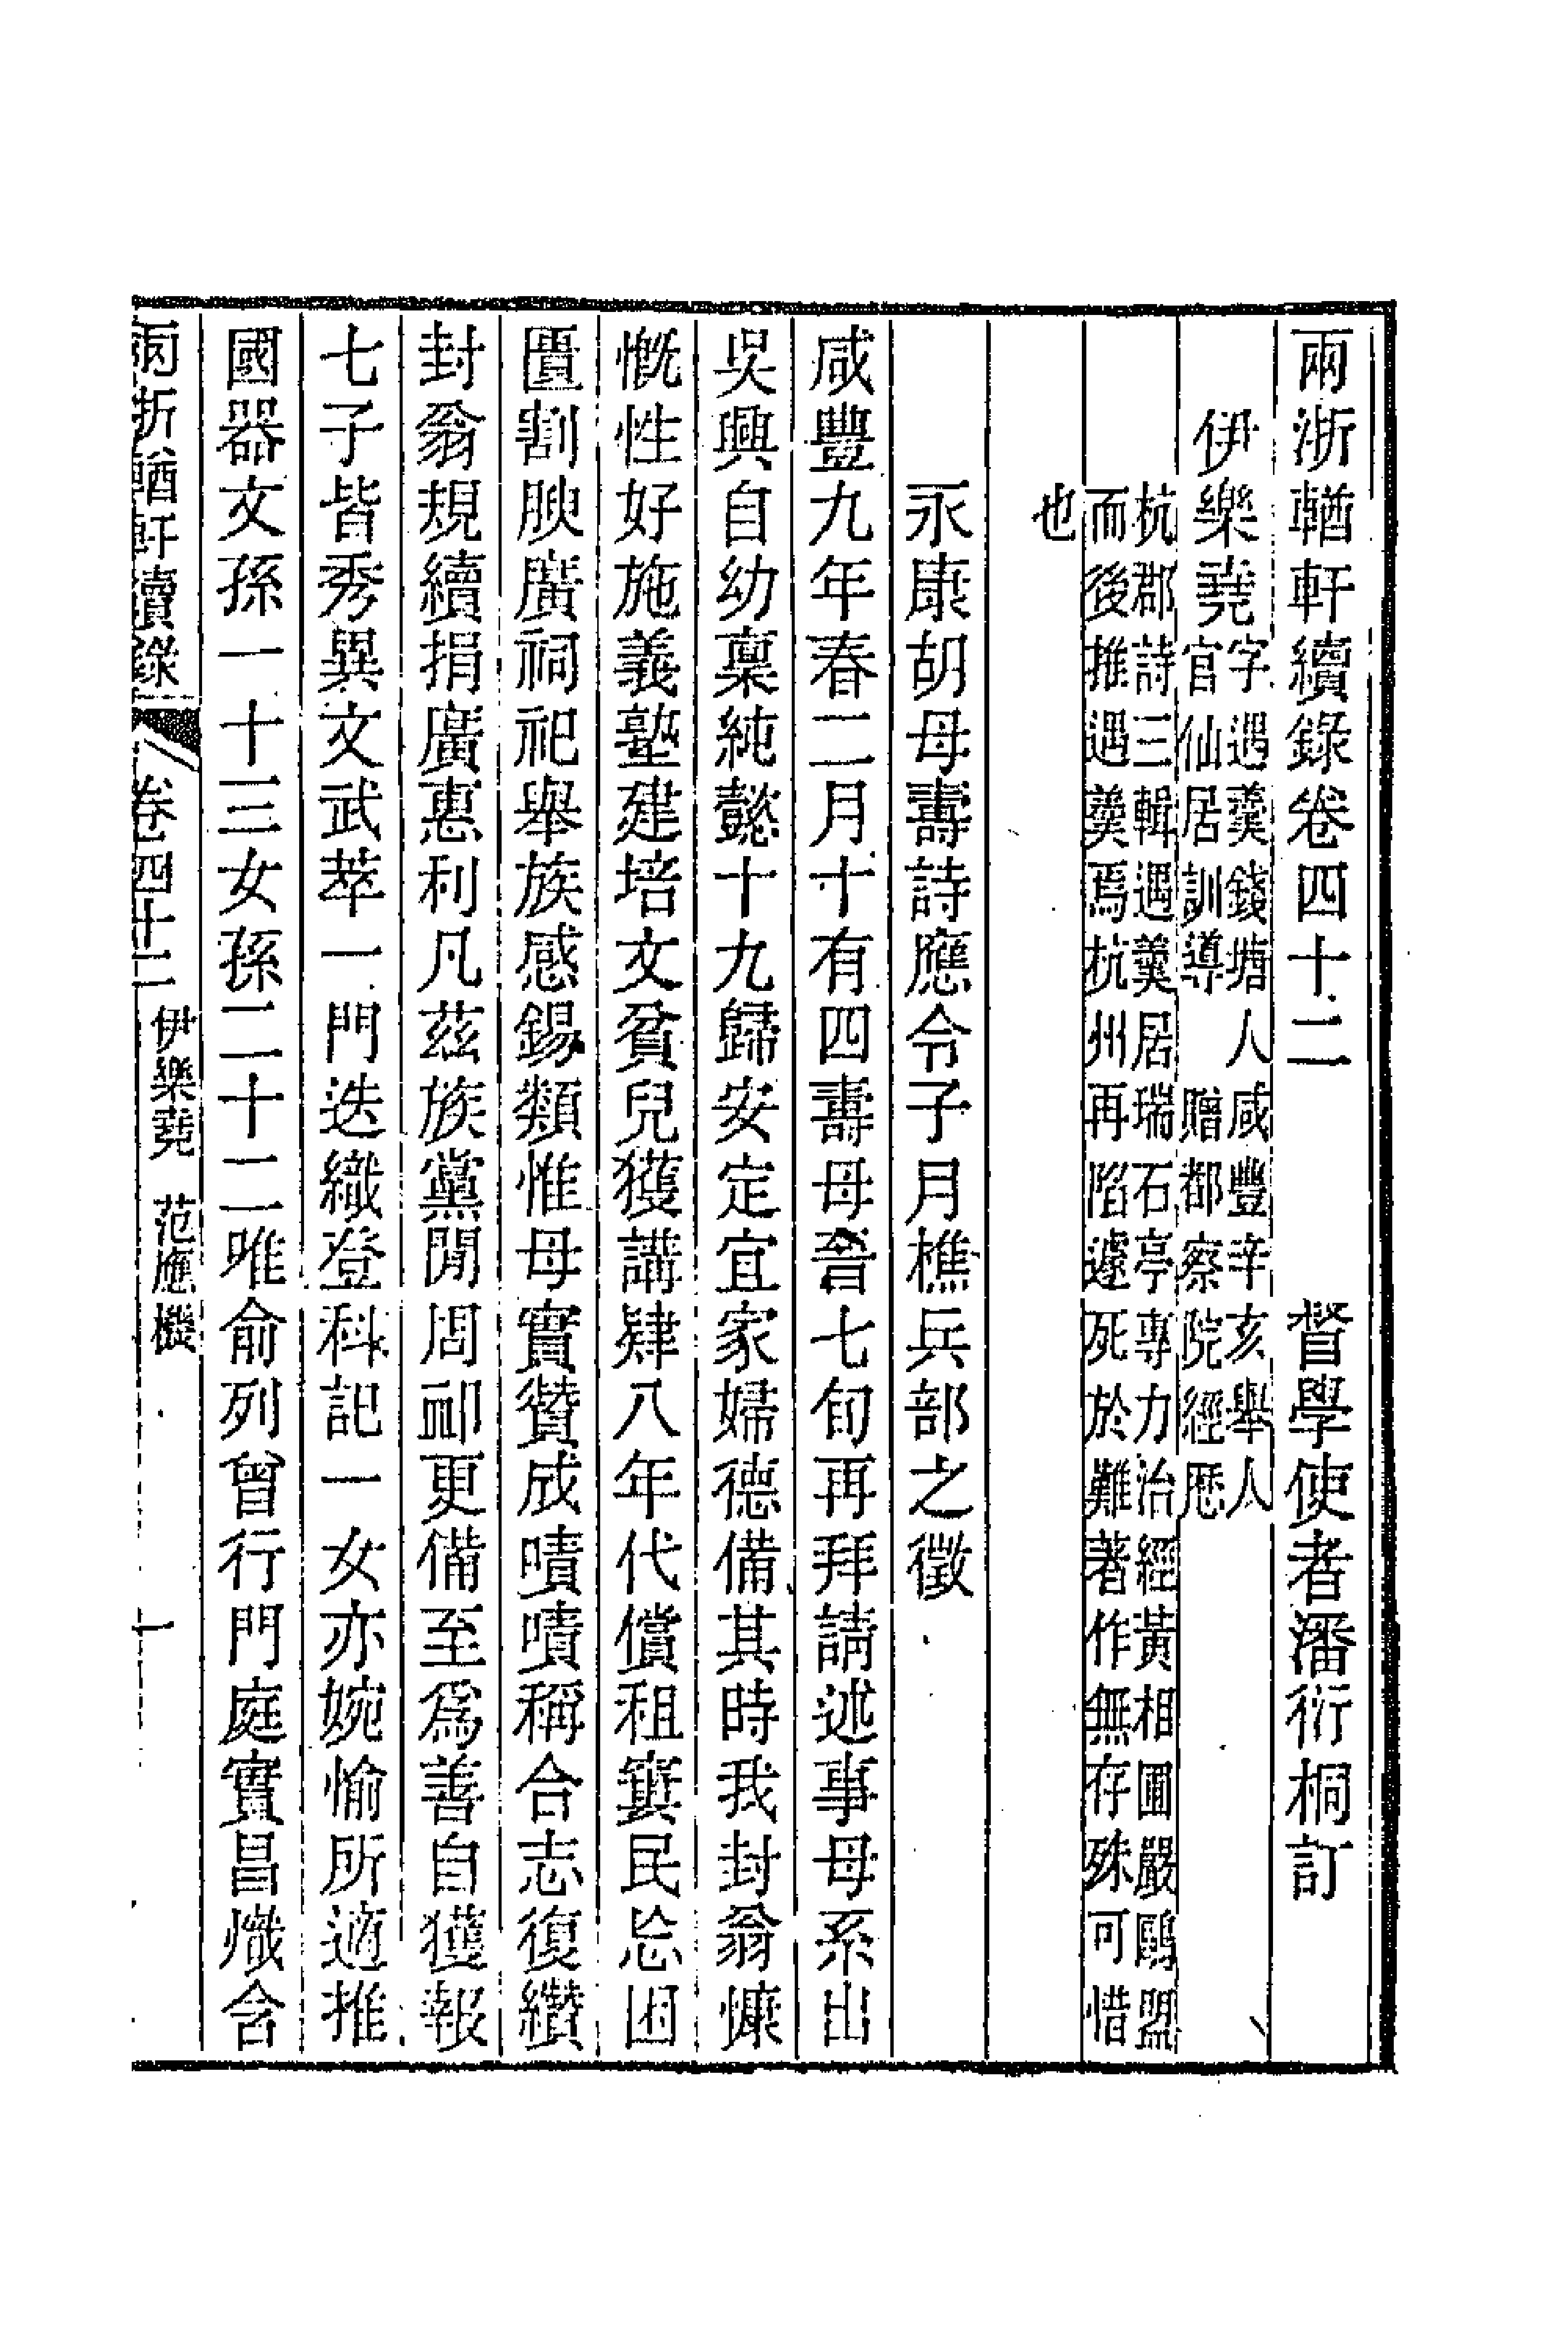 兩浙輶軒續錄卷四十二　　督學使者潘衍桐訂
伊樂堯字遇羹錢塘人咸豐辛亥舉人
官仙居訓導　贈都察院經歷
杭郡詩三輯遇羹居瑞石亭專力治經黃相圃嚴鷗盟
而後推遇羹焉杭州再陷遽死於難著作無存殊可惜
也
永康胡母壽詩應令子月樵兵部之徵
咸豐九年春二月十有四壽母晉七旬再拜請述事母系出
吳興自幼稟純懿十九歸安定宜家婦德備其時我封翁慷
慨性好施義塾建培文貧兒獲講肄八年代償租窶民忘困
匱割腴廣祠祀舉族感錫類惟母實贊成嘖嘖稱合志復纘
封翁規續捐廣惠利凡茲族黨閒周卹更備至為善自獲報
七子皆秀異文武萃一門迭織登科記一女亦婉愉所適推
國器文孫一十三女孫二十二唯俞列曾行門庭實昌熾含
兩浙輶軒續錄　卷四十二　伊樂堯　范應機　一